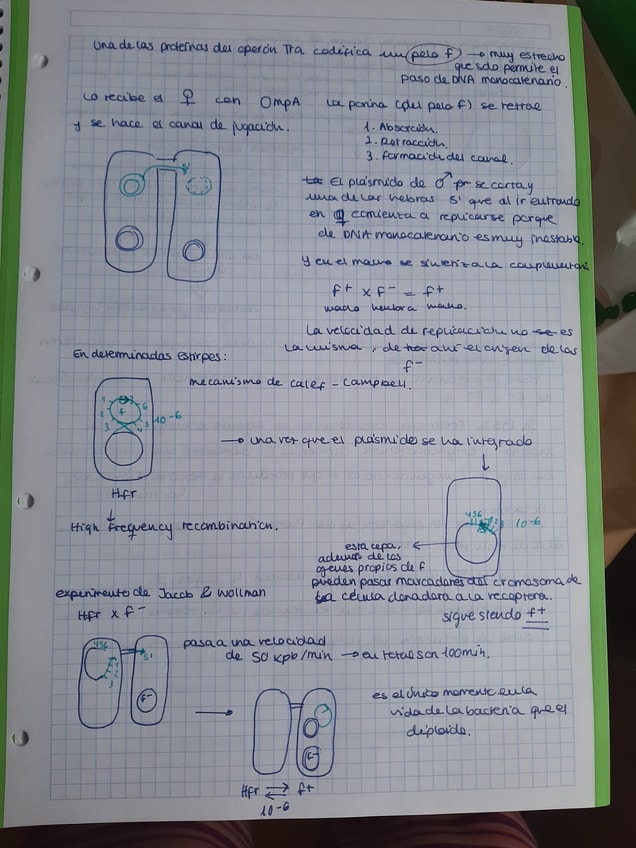 Una de las proteínas del operón Tra codifica un pelo f → muy estrecho
que solo permite el
paso de DNA monocatenario.
Lo recibe el ♀ con OmpA La porina (del pelo f) se retrae
y se hace el canal de jugación.
1. Absorción.
2. Retracción.
3. Formación del canal.
5'
El plásmido de ♂ se corta y
una de las hebras 5' que al ir entrando
en ♀ comienza a replicarse porque
de DNA monocatenario es muy inestable.
Y en el macho se sintetiza la complementaria
f+ x f- = f+
macho hembra macho.
La velocidad de replicación no es
la misma, de ahí el origen de las
f-
En determinadas estirpes:
mecanismo de Calef - Campbell.
1 2 3 f 6 5 4 10-6
→ una vez que el plásmido se ha integrado
Hfr
High frequency recombination.
456 10-6
esta cepa,
además de los
genes propios de f
pueden pasar marcadores del cromosoma de
la célula donadora a la receptora.
sigue siendo f+
experimento de Jacob & Wollman
Hfr x f-
456 1 2 3 5' f-
pasa a una velocidad
de 50 kpb/min → en total son 100min.
es el único momento en la
vida de la bacteria que el
diploide.
f-
Hfr ⇄ f+
10-6